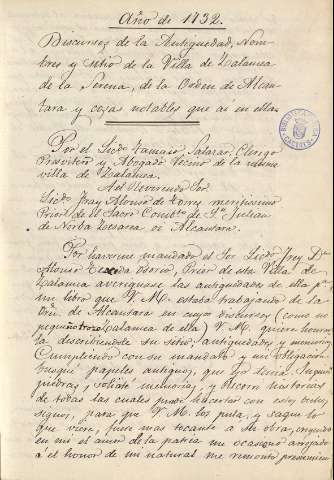 Año de 1732.
Discursos de la Antiguedad, Nom-
bres y sitio de la Villa de Zalamea
de la Serena, de la Orden de Alcan-
tara y cosas notables que ai en ella.
Por el Licdo Tamaio Salazar, Clerigo
Presvitero y Abogado Vecino de la misma
villa de Zalamea.
Al Reverendo Sor
Licdo Fray Alonso de Torres meritissimo
Prior de el Sacro Combto de Sn Julian
de Norba Cesarea or Alcantara.
Por haverme mandado el Sor Licdo Frey Dn
Alonso Prior de esta Villa de
Zalamea averiguase las antiguedades de ella pa
un libro que V. M. estaba trabajando de la
Orn de Alcantara en cuyos discursos (como un
pequeño trozo Zalamea de ella) V. M. quiere honrar-
la discribiendole su sitio, antiguedades y memorias
Cumpliendo con su mandato y mi obligacion
busqué papeles antiguos, que io tenia. Inquirí
piedras, solicité memorias, y recorri historias
de todas las cuales pude hacertar con estos
para que V. M. los pula, y saque lo
que viere, fuere mas tocante á su obra, creyendo
en mi el amor de la patria me ocasionó arrojado
á el honor de mi natural me remonté